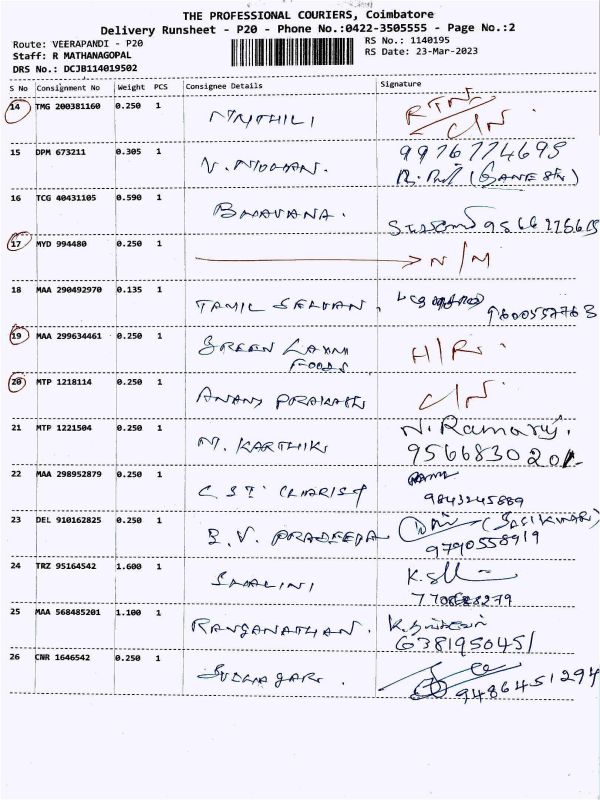 THE PROFESSIONAL COURIERS, Coimbatore
Delivery Runsheet - P20 - Phone No.:0422-3505555 - Page No.:2
Route: VEERAPANDI - P20
RS No.: 1140195
Staff: R MATHANAGOPAL
RS Date: 23-Mar-2023
DRS No.: DCJB114019502
S No Consignment No Weight PCS Consignee Details Signature
14 TMG 200381160 0.250 1 MYTHILI C/N
15 DPM 673211 0.305 1 V. MOHAN. 9976774695
(GANESH)
16 TCG 40431105 0.590 1 BHAVANA.
17 MYD 994480 0.250 1 N/M
18 MAA 290492970 0.135 1 TAMIL SELVAN. 9600557763
19 MAA 299634461 0.250 1 GREEN LAXMI FOODS H/R.
20 MTP 1218114 0.250 1 ANAND PRAKASH C/N
21 MTP 1221504 0.250 1 M. KARTHIK N. Ramaraj.
9566830201
22 MAA 298952879 0.250 1 C S I
9843245889
23 DEL 910162825 0.250 1 B. V. PRADEEPA (SASIKUMAR)
9790558919
24 TRZ 95164542 1.600 1 SHALINI
25 MAA 568485201 1.100 1 RANGANATHAN.
6381950451
26 CNR 1646542 0.250 1 SUDHAGAR. 9486451294